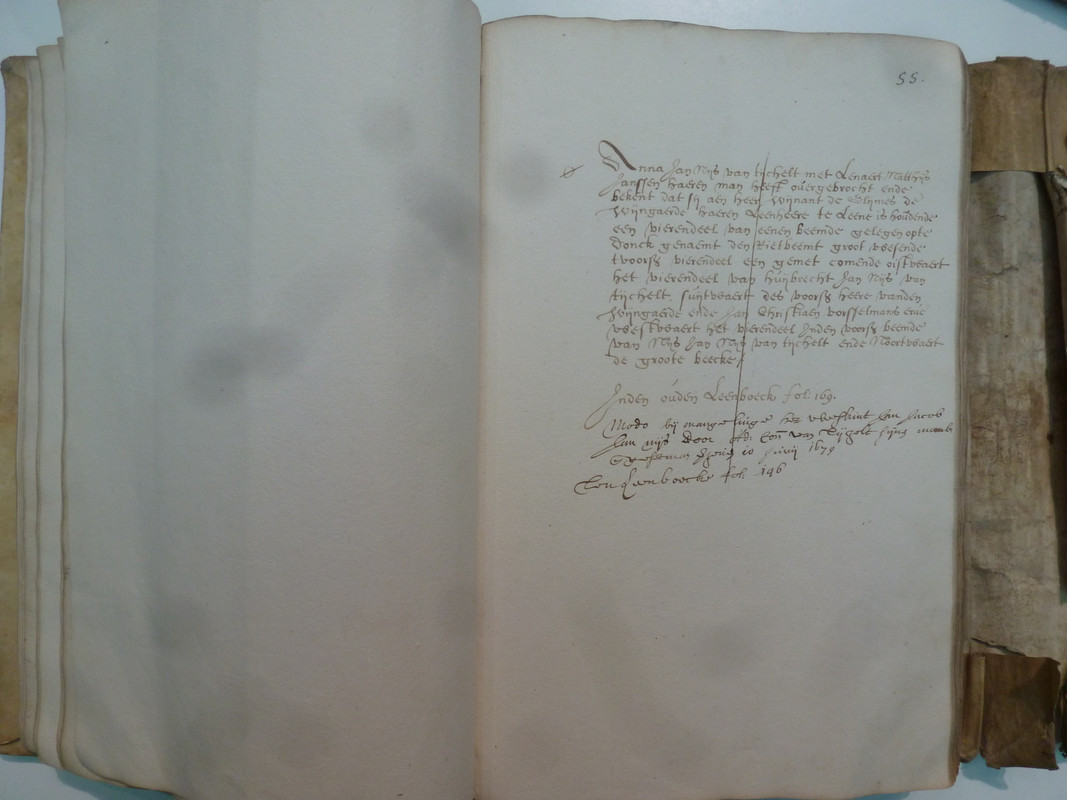 55.
Anna Jan Nijs van tichelt met Lenaert Matthijs
Janssen haeren man heeft overgebrocht ende
bekent dat sij aen heer Wijnant de Glijmes de
Wijngaerde haeren Leenheere te Leene is houdende
een vierendeel van eenen beemde gelegen opte
Donck genaemt den Rietbeemt groot wesende
tvoors vierendeel een gemet comende oistwaert
het vierendeel van huijbrecht Jan Nijs van
tichelt, suijtwaert des voors heere vanden
Wijngaerde ende Jan Christiaen vorsselmans erve
westwaert het vierendeel Inden voors beemde
van Nijs Jan Nijs van tichelt ende Noortwaert
de groote beecke
Inden ouden Leenboeck fol. 169.
Modo bij mangelinge het Jan Jacob
Jan nijs door van sijns
10 Junij 1679
Leenboecke fol. 146